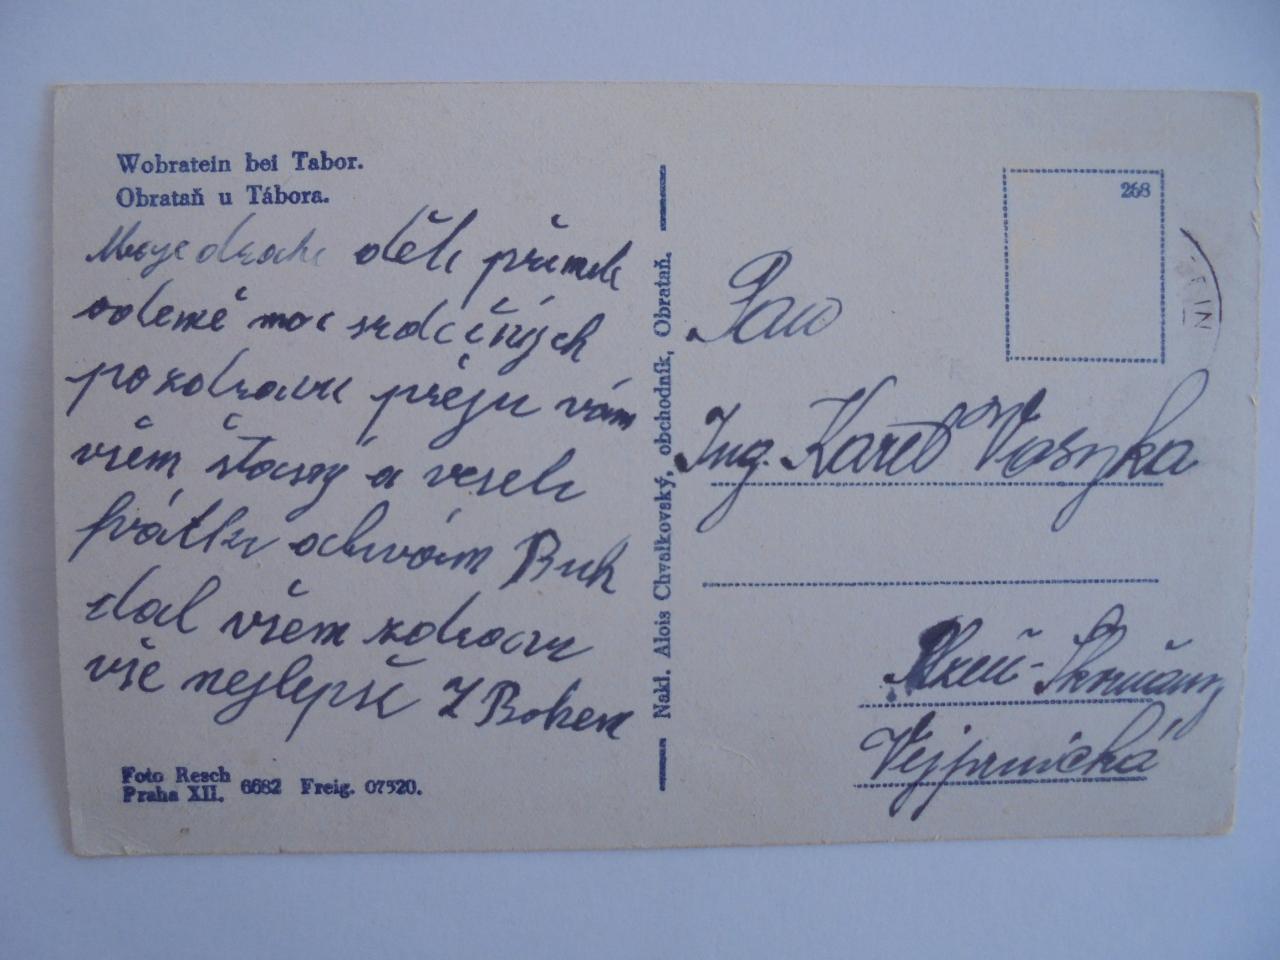 Wobratein bei Tabor.
Obrataň u Tábora.
Moje drahe děti přimete
odemě moc srdečných
pozdravu přeju vám
všem štasny a vesele
svátky achvám Buh
dal všem zdravy
vše nejlepši Z Bohem
Foto Resch
Praha XII. 6682 Freig. 07520.
Nakl. Alois Chvalkovský, obchodník, Obrataň.
268
Pan
Ing. Karel
Plzeň - Skvrňany
Vejprnická